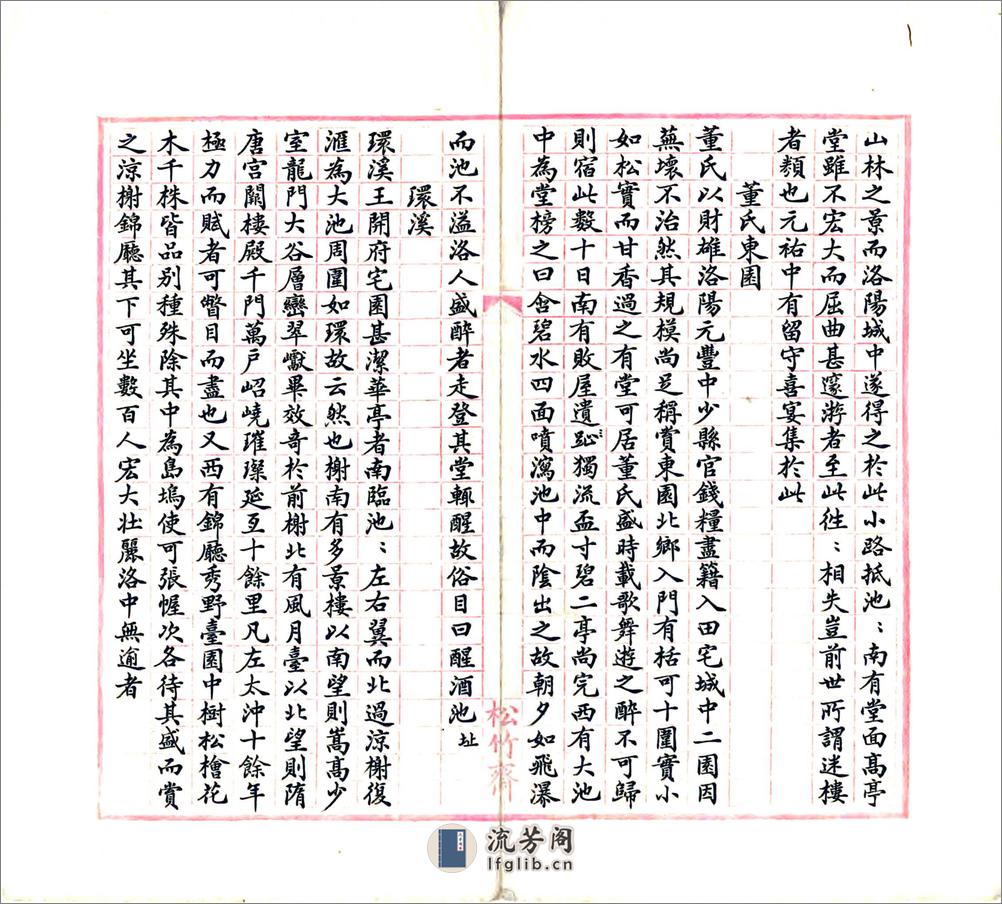 山林之景而洛陽城中遂得之於此小路抵池:南有堂面髙亭
堂雖不宏大而屈曲甚邃游者至此徃:相失豈前世所謂迷樓
者類也元祐中有留守喜宴集於此
董氏東園
董氏以財雄洛陽元豐中少縣官錢糧盡籍入田宅城中二園因
蕪壞不治然其規模尚足稱賞東園北鄉入門有栝可十圍實小
如松實而甘香過之有堂可居董氏盛時載歌舞遊之醉不可歸
則宿此數十日南有敗屋遺趾獨流盃寸碧二亭尚完西有大池
中為堂榜之曰含碧水四面噴瀉池中而陰出之故朝夕如飛瀑
而池不溢洛人盛醉者走登其堂輒醒故俗目曰醒酒池
址
環溪
環溪王開府宅園甚潔華亭者南臨池:左右翼而北過涼榭復
滙為大池周圍如環故云然也榭南有多景樓以南望則嵩髙少
室龍門大谷層巒翠巘畢效奇於前榭北有風月臺以北望則隋
唐宫闕樓殿千門萬戶岧嶢璀璨延亙十餘里凡左太沖十餘年
極力而賦者可瞥目而盡也又西有錦廳秀野臺園中樹松檜花
木千株皆品别種殊除其中為島塢使可張幄次各待其盛而賞
之涼榭錦廳其下可坐數百人宏大壯麗洛中無逾者
松竹齋
流芳阁
lfglib.cn